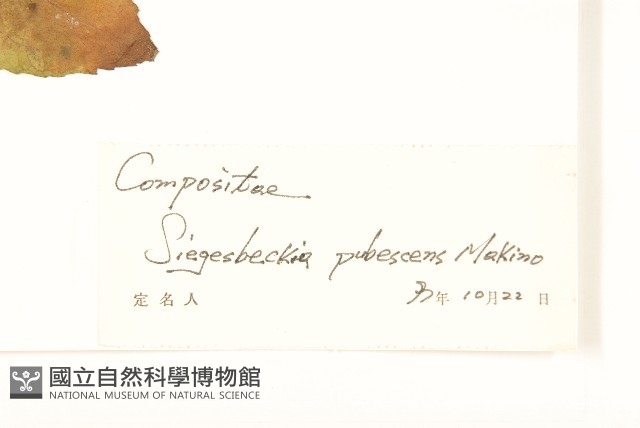 Compositae
Siegesbeckia pubescens Makino
定名人 年 10月22日
國立自然科學博物館
NATIONAL MUSEUM OF NATURAL SCIENCE